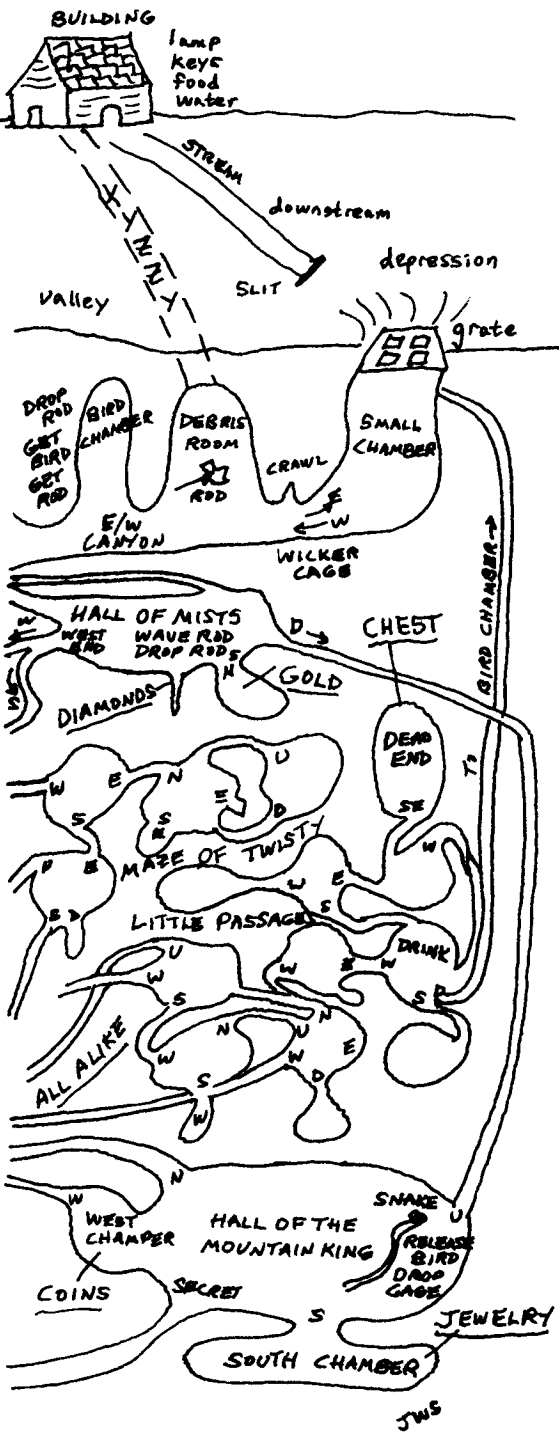 BUILDING
lamp
keys
food
water
STREAM
downstream
SLIT
X
Y
N
N
Y
depression
valley
grate
DROP
ROD
GET
BIRD
GET
ROD
BIRD
CHAMBER
DEBRIS
ROOM
ROD
CRAWL
SMALL
CHAMBER
E
W
E/W
CANYON
WICKER
CAGE
BIRD CHAMBER→
TO
W
HALL OF MISTS
WEST
END
WAVE ROD
DROP ROD
S
N
D
CHEST
GOLD
DIAMONDS
DEAD
END
SE
W
W
E
N
U
S
E
D
MAZE OF TWISTY
E
W
E
S
LITTLE PASSAGES
DRINK
W
W
S
U
W
S
N
N
U
W
E
ALL ALIKE
W
S
D
W
N
W
WEST
CHAMPER
HALL OF THE
MOUNTAIN KING
SNAKE
U
RELEASE
BIRD
DROP
CAGE
COINS
SECRET
S
JEWELRY
SOUTH CHAMBER
JWS